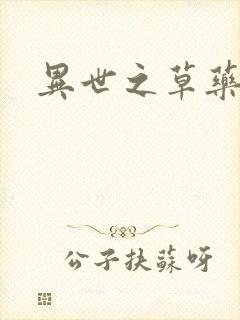 異世之草藥
公子扶蘇呀